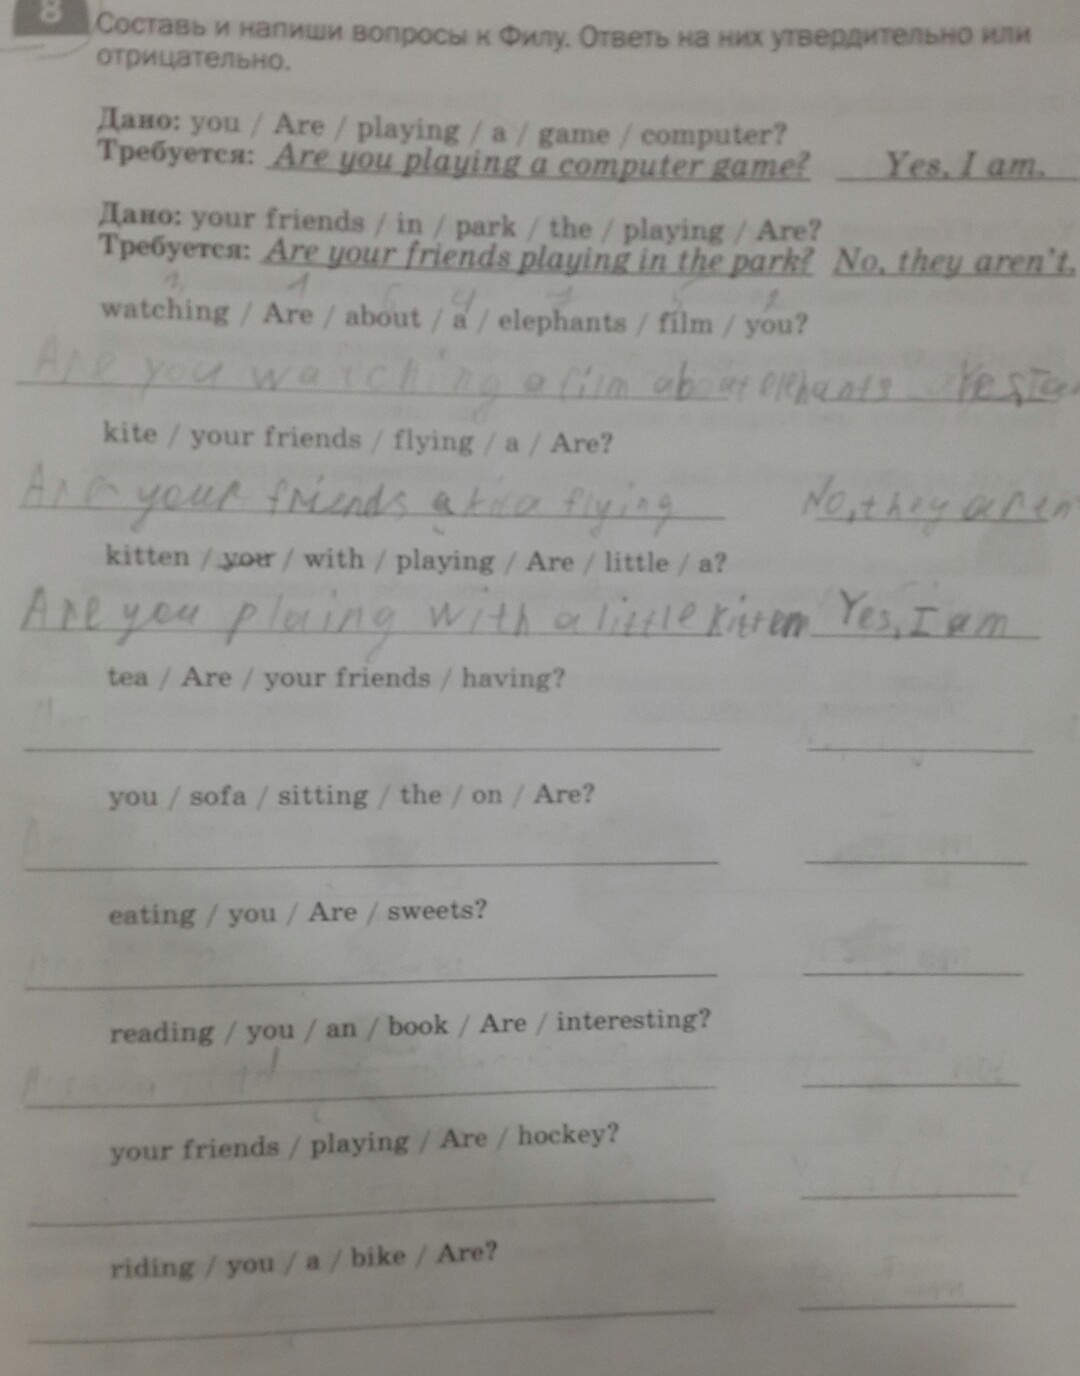 8
Составь и напиши вопросы к Филу. Ответь на них утвердительно или
отрицательно.
Дано: you / Are / playing / a / game / computer?
Требуется: Are you playing a computer game? Yes, I am.
Дано: your friends / in / park / the / playing / Are?
Требуется: Are your friends playing in the park? No, they aren't.
watching / Are / about / a / elephants / film / you?
Are you watching a film about elephants Yes, I am
kite / your friends / flying / a / Are?
Are your friends a kite flying No, they aren
kitten / you / with / playing / Are / little / a?
Are you plaing with a little kitten Yes, I am
tea / Are / your friends / having?
you / sofa / sitting / the / on / Are?
eating / you / Are / sweets?
reading / you / an / book / Are / interesting?
your friends / playing / Are / hockey?
riding / you / a / bike / Are?